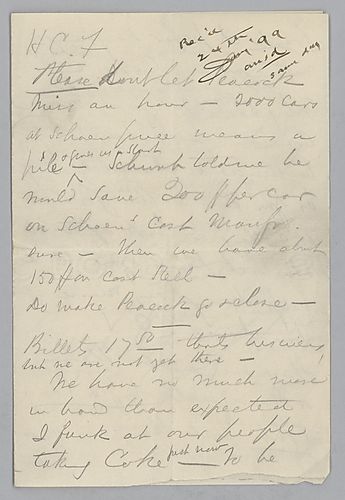 H C F
Rec'd
24th
Jany 99
ans'd
same day
Please dont let Peacock
miss an hour — 2000 cars
at Schoen price means a
pile — & gives us a start
Schwab told me he
would save 200 $ per car
on Schoen's Cost Manfr.
ours — then we have abt
150 $ on cost Steel —
Do make Peacock go & close —
Billets 17 50 — thats his views
but we are not yet there — !
We have so much more
in hand than expected
I funk at our people
taking Coke just now — To be